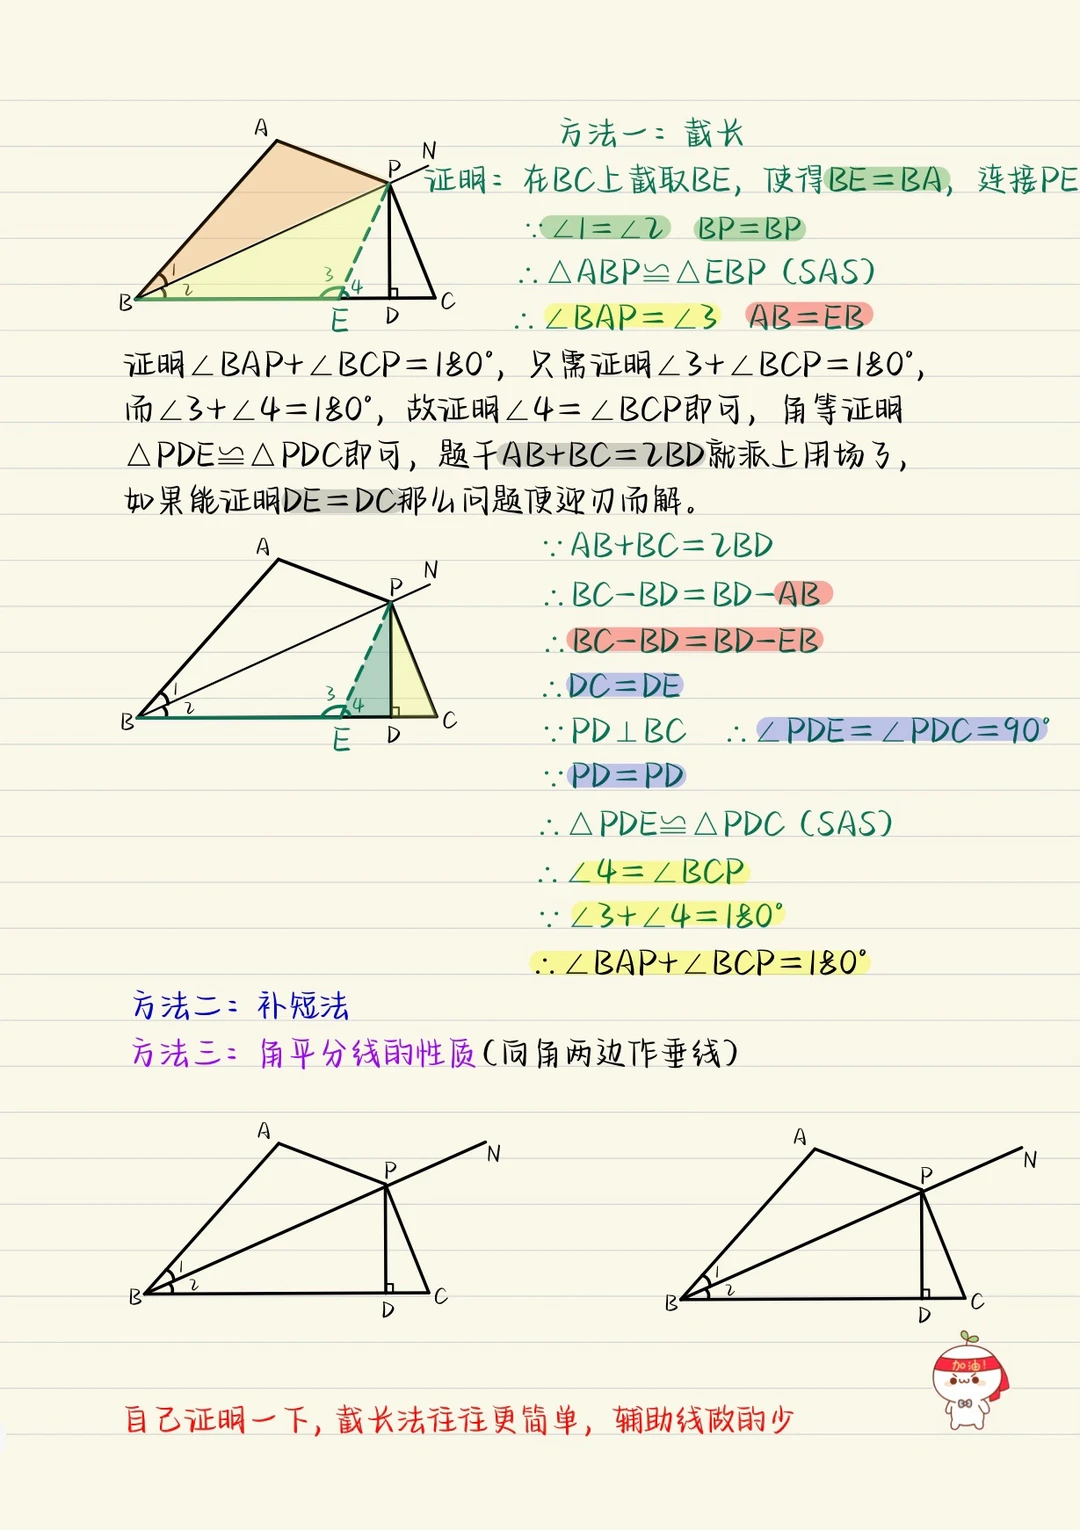 方法一：截长
证明：在BC上截取BE，使得BE=BA，连接PE
∵∠1=∠2 BP=BP
∴△ABP≌△EBP（SAS）
∴∠BAP=∠3 AB=EB
A
P
N
1
2
3
4
B
E
D
C
证明∠BAP+∠BCP=180°，只需证明∠3+∠BCP=180°，
而∠3+∠4=180°，故证明∠4=∠BCP即可，角等证明
△PDE≌△PDC即可，题干AB+BC=2BD就派上用场了，
如果能证明DE=DC那么问题便迎刃而解。
∵AB+BC=2BD
∴BC-BD=BD-AB
∴BC-BD=BD-EB
∴DC=DE
∵PD⊥BC ∴∠PDE=∠PDC=90°
∵PD=PD
∴△PDE≌△PDC（SAS）
∴∠4=∠BCP
∵∠3+∠4=180°
∴∠BAP+∠BCP=180°
A
P
N
1
2
3
4
B
E
D
C
方法二：补短法
方法三：角平分线的性质（向角两边作垂线）
A
P
N
1
2
B
D
C
A
P
N
1
2
B
D
C
加油！
自己证明一下，截长法往往更简单，辅助线做的少